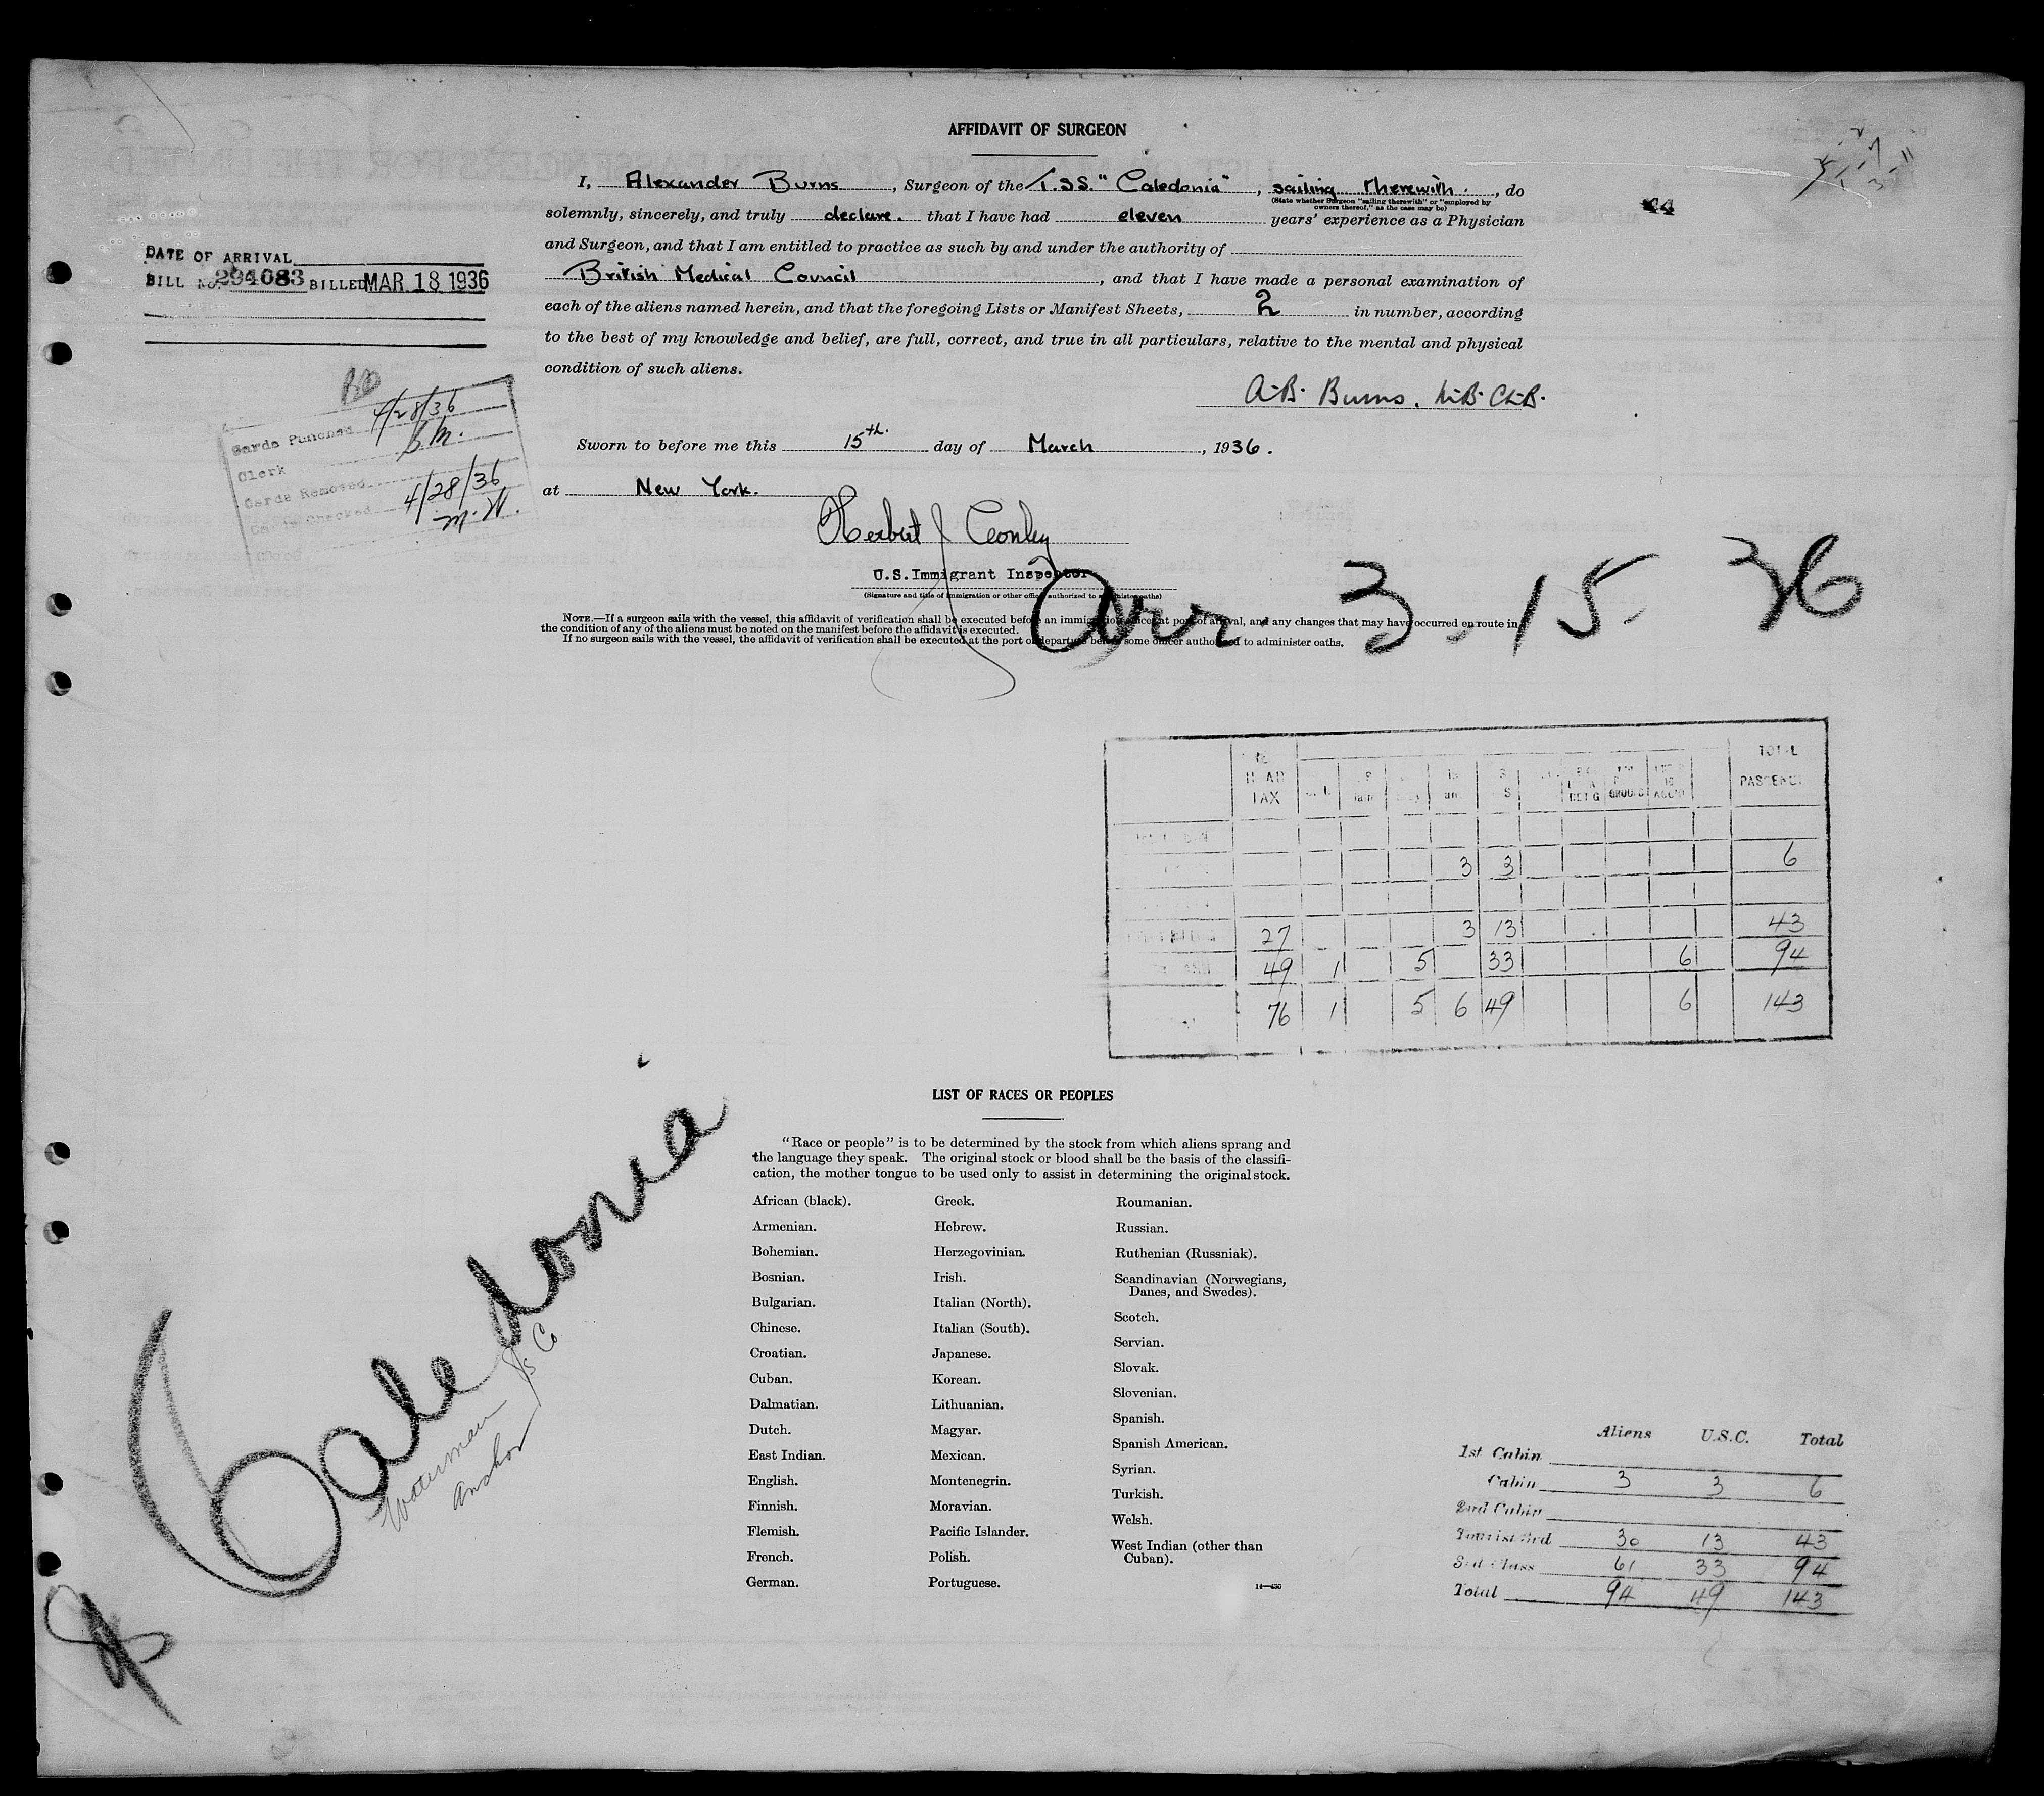 AFFIDAVIT OF SURGEON
I, Alexander Burns, Surgeon of the T.SS. "Caledonia", sailing therewith., do
(State whether Surgeon "sailing therewith" or "employed by
owners thereof," as the case may be)
solemnly, sincerely, and truly declare. that I have had eleven years' experience as a Physician
and Surgeon, and that I am entitled to practice as such by and under the authority of
British Medical Council, and that I have made a personal examination of
each of the aliens named herein, and that the foregoing Lists or Manifest Sheets, 2 in number, according
to the best of my knowledge and belief, are full, correct, and true in all particulars, relative to the mental and physical
condition of such aliens.
A.B. Burns. M.B. Ch.B.
Sworn to before me this 15th. day of March, 1936.
at New York.
Herbert J Conley
U.S. Immigrant Inspector
(Signature and title of immigration or other officer authorized to administer oaths)
NOTE.—If a surgeon sails with the vessel, this affidavit of verification shall be executed before an immigration officer at port of arrival, and any changes that may have occurred en route in
the condition of any of the aliens must be noted on the manifest before the affidavit is executed.
If no surgeon sails with the vessel, the affidavit of verification shall be executed at the port of departure before some officer authorized to administer oaths.
44
DATE OF ARRIVAL
BILL No. 294083 BILLED MAR 18 1936
Cards Punched 4/28/36
Clerk
Cards Removed 4/28/36
Cards Checked M.W.
Arr 3.15.36
HEAD TAX TOTAL PASSENG
3 3 6
27 3 13 43
49 1 5 33 6 94
76 1 5 6 49 6 143
LIST OF RACES OR PEOPLES
"Race or people" is to be determined by the stock from which aliens sprang and
the language they speak. The original stock or blood shall be the basis of the classifi-
cation, the mother tongue to be used only to assist in determining the original stock.
African (black).
Armenian.
Bohemian.
Bosnian.
Bulgarian.
Chinese.
Croatian.
Cuban.
Dalmatian.
Dutch.
East Indian.
English.
Finnish.
Flemish.
French.
German.
Greek.
Hebrew.
Herzegovinian.
Irish.
Italian (North).
Italian (South).
Japanese.
Korean.
Lithuanian.
Magyar.
Mexican.
Montenegrin.
Moravian.
Pacific Islander.
Polish.
Portuguese.
Roumanian.
Russian.
Ruthenian (Russniak).
Scandinavian (Norwegians,
Danes, and Swedes).
Scotch.
Servian.
Slovak.
Slovenian.
Spanish.
Spanish American.
Syrian.
Turkish.
Welsh.
West Indian (other than
Cuban).
14—430
Caledonia
Waterman SS Co
Anchor
Aliens U.S.C. Total
1st Cabin
Cabin 3 3 6
2nd Cabin
Tourist 3rd 30 13 43
3rd Class 61 33 94
Total 94 49 143